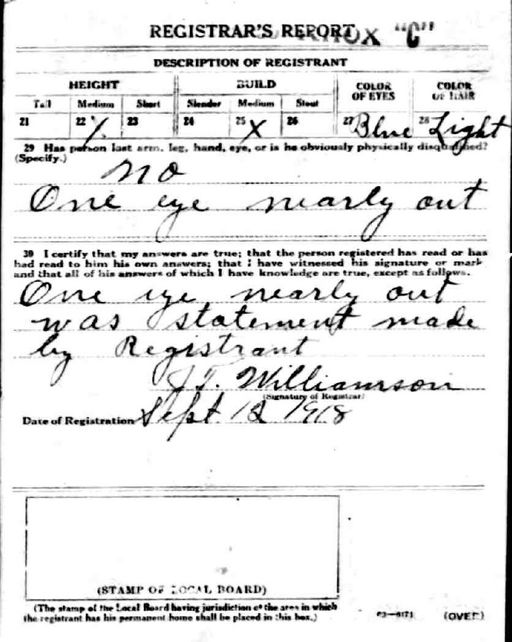 REGISTRAR'S REPORT
KNOX "C"
DESCRIPTION OF REGISTRANT
HEIGHT BUILD COLOR OF EYES COLOR OF HAIR
Tall Medium Short Slender Medium Stout
21 22 X 23 24 25 X 26 27 Blue 28 Light
29 Has person lost arm, leg, hand, eye, or is he obviously physically disqualified?
(Specify.)
no
One eye nearly out
30 I certify that my answers are true; that the person registered has read or has
had read to him his own answers; that I have witnessed his signature or mark
and that all of his answers of which I have knowledge are true, except as follows.
One eye nearly out
was statement made
by Registrant
J.T. Williamson
(Signature of Registrar)
Date of Registration Sept. 12 1918
(STAMP OF LOCAL BOARD)
(The stamp of the Local Board having jurisdiction of the area in which
the registrant has his permanent home shall be placed in this box.)
(OVER)